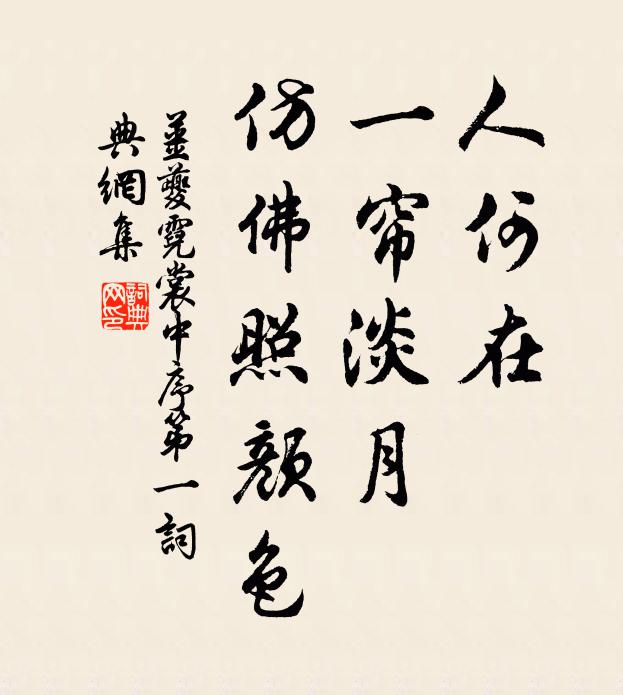 人何在
一帘淡月
仿佛照顏色
姜夔霓裳中序第一詞
典網集
詞典
网印